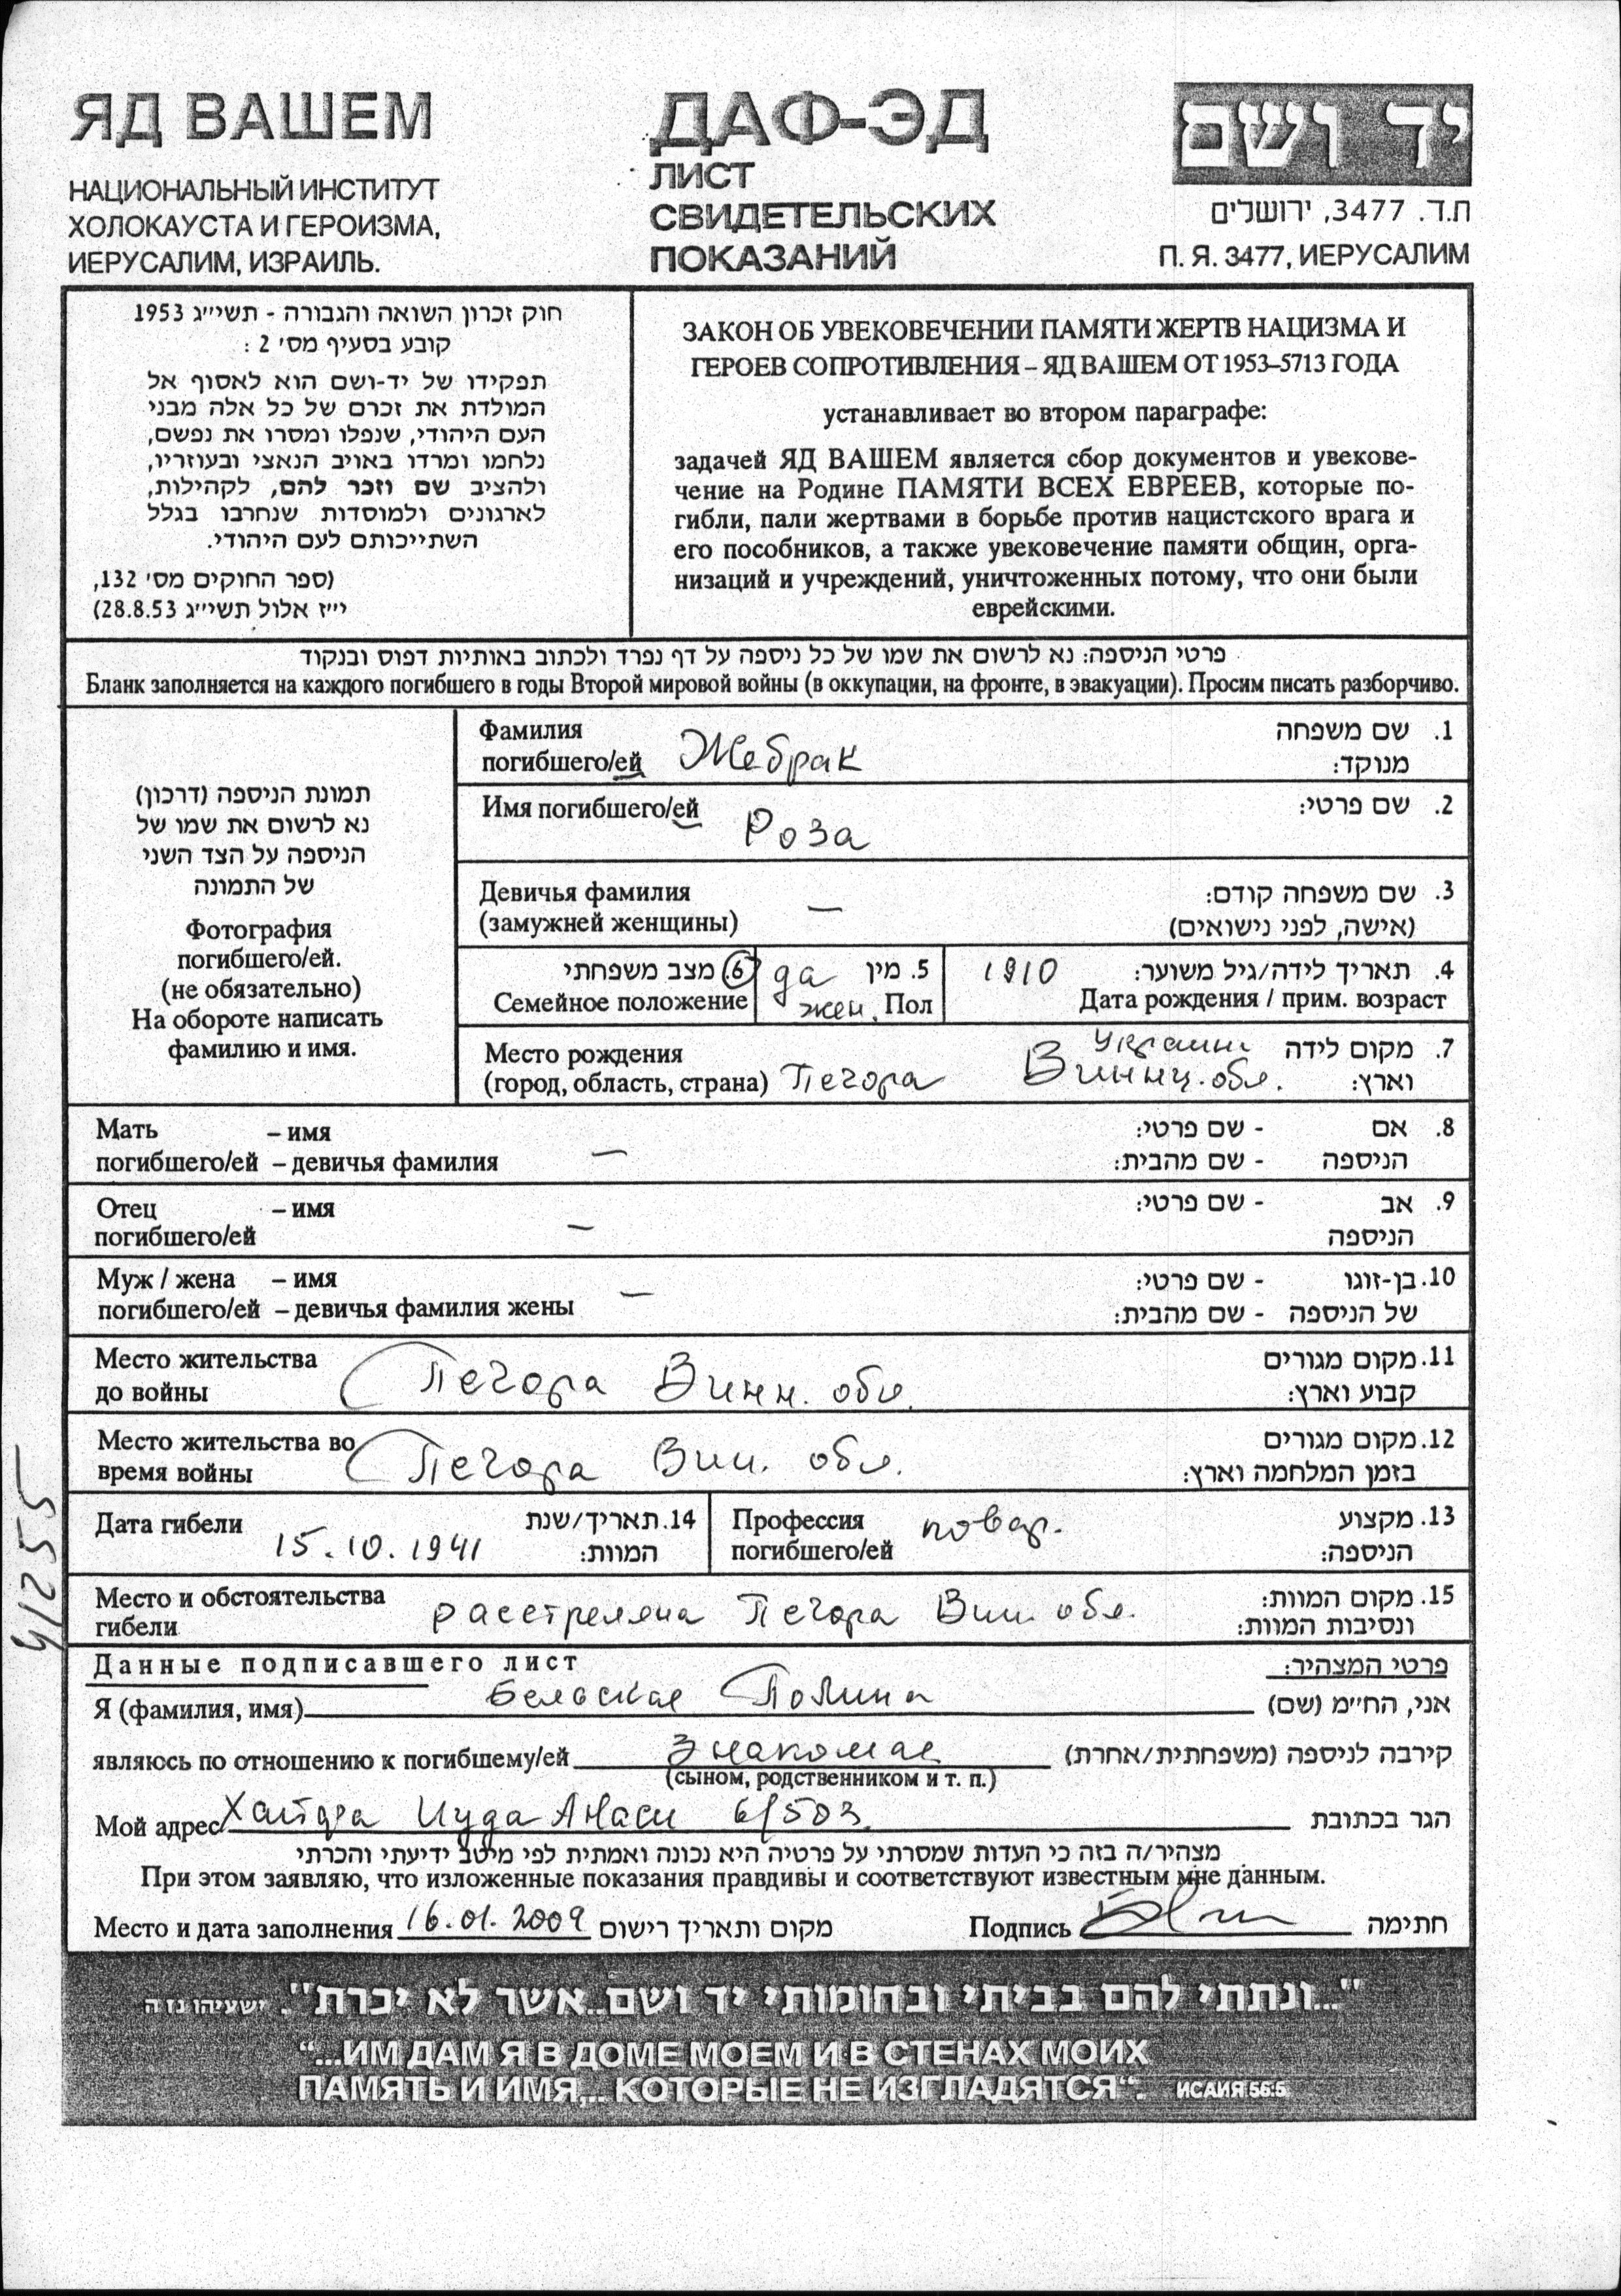 ЯД ВАШЕМ
НАЦИОНАЛЬНЫЙ ИНСТИТУТ
ХОЛОКАУСТА И ГЕРОИЗМА,
ИЕРУСАЛИМ, ИЗРАИЛЬ.
ДАФ-ЭД
ЛИСТ
СВИДЕТЕЛЬСКИХ
ПОКАЗАНИЙ
יד ושם
ת.ד. 3477, ירושלים
П. Я. 3477, ИЕРУСАЛИМ
חוק זכרון השואה והגבורה - תשי״ג 1953
קובע בסעיף מס׳ 2 :
תפקידו של יד-ושם הוא לאסוף אל
המולדת את זכרם של כל אלה מבני
העם היהודי, שנפלו ומסרו את נפשם,
נלחמו ומרדו באויב הנאצי ובעוזריו,
ולהציב שם וזכר להם, לקהילות,
לארגונים ולמוסדות שנחרבו בגלל
השתייכותם לעם היהודי.
(ספר החוקים מס׳ 132,
י״ז אלול תשי״ג 28.8.53)
ЗАКОН ОБ УВЕКОВЕЧЕНИИ ПАМЯТИ ЖЕРТВ НАЦИЗМА И
ГЕРОЕВ СОПРОТИВЛЕНИЯ – ЯД ВАШЕМ ОТ 1953–5713 ГОДА
устанавливает во втором параграфе:
задачей ЯД ВАШЕМ является сбор документов и увекове-
чение на Родине ПАМЯТИ ВСЕХ ЕВРЕЕВ, которые по-
гибли, пали жертвами в борьбе против нацистского врага и
его пособников, а также увековечение памяти общин, орга-
низаций и учреждений, уничтоженных потому, что они были
еврейскими.
פרטי הניספה: נא לרשום את שמו של כל ניספה על דף נפרד ולכתוב באותיות דפוס ובנקוד
Бланк заполняется на каждого погибшего в годы Второй мировой войны (в оккупации, на фронте, в эвакуации). Просим писать разборчиво.
תמונת הניספה (דרכון)
נא לרשום את שמו של
הניספה על הצד השני
של התמונה
Фотография
погибшего/ей.
(не обязательно)
На обороте написать
фамилию и имя.
Фамилия 1. שם משפחה
погибшего/ей Жебрак מנוקד:
Имя погибшего/ей Роза 2. שם פרטי:
Девичья фамилия 3. שם משפחה קודם:
(замужней женщины) — (אישה, לפני נישואים)
6 מצב משפחתי да 5. מין 1910 4. תאריך לידה/גיל משוער:
Семейное положение жен. Пол Дата рождения / прим. возраст
Место рождения Украины 7. מקום לידה
(город, область, страна) Печора Винниц. обл. וארץ:
Мать – имя 8. אם - שם פרטי:
погибшего/ей – девичья фамилия — הניספה - שם מהבית:
Отец – имя 9. אב - שם פרטי:
погибшего/ей — הניספה
Муж / жена – имя 10. בן-זוגו - שם פרטי:
погибшего/ей – девичья фамилия жены — של הניספה - שם מהבית:
Место жительства 11. מקום מגורים
до войны Печора Винн. обл. קבוע וארץ:
Место жительства во 12. מקום מגורים
время войны Печора Вин. обл. בזמן המלחמה וארץ:
Дата гибели 14. תאריך/שנת
15.10.1941 המוות:
Профессия повар. 13. מקצוע
погибшего/ей הניספה:
Место и обстоятельства 15. מקום המוות:
гибели расстреляна Печора Вин. обл. ונסיבות המוות:
41255
Данные подписавшего лист פרטי המצהיר:
Я (фамилия, имя) Бельская Полина אני, הח״מ (שם)
являюсь по отношению к погибшему/ей Знакомая קירבה לניספה (משפחתית/אחרת)
(сыном, родственником и т. п.)
Мой адрес Хайфа Иуда Анаси 6/503 הגר בכתובת
מצהיר/ה בזה כי העדות שמסרתי על פרטיה היא נכונה ואמתית לפי מיטב ידיעתי והכרתי
При этом заявляю, что изложенные показания правдивы и соответствуют известным мне данным.
Место и дата заполнения 16.01.2009 מקום ותאריך רישום Подпись חתימה
"...ונתתי להם בביתי ובחומותי יד ושם..אשר לא יכרת". ישעיהו נו ה
“...ИМ ДАМ Я В ДОМЕ МОЕМ И В СТЕНАХ МОИХ
ПАМЯТЬ И ИМЯ,.. КОТОРЫЕ НЕ ИЗГЛАДЯТСЯ“. ИСАИЯ 56:5